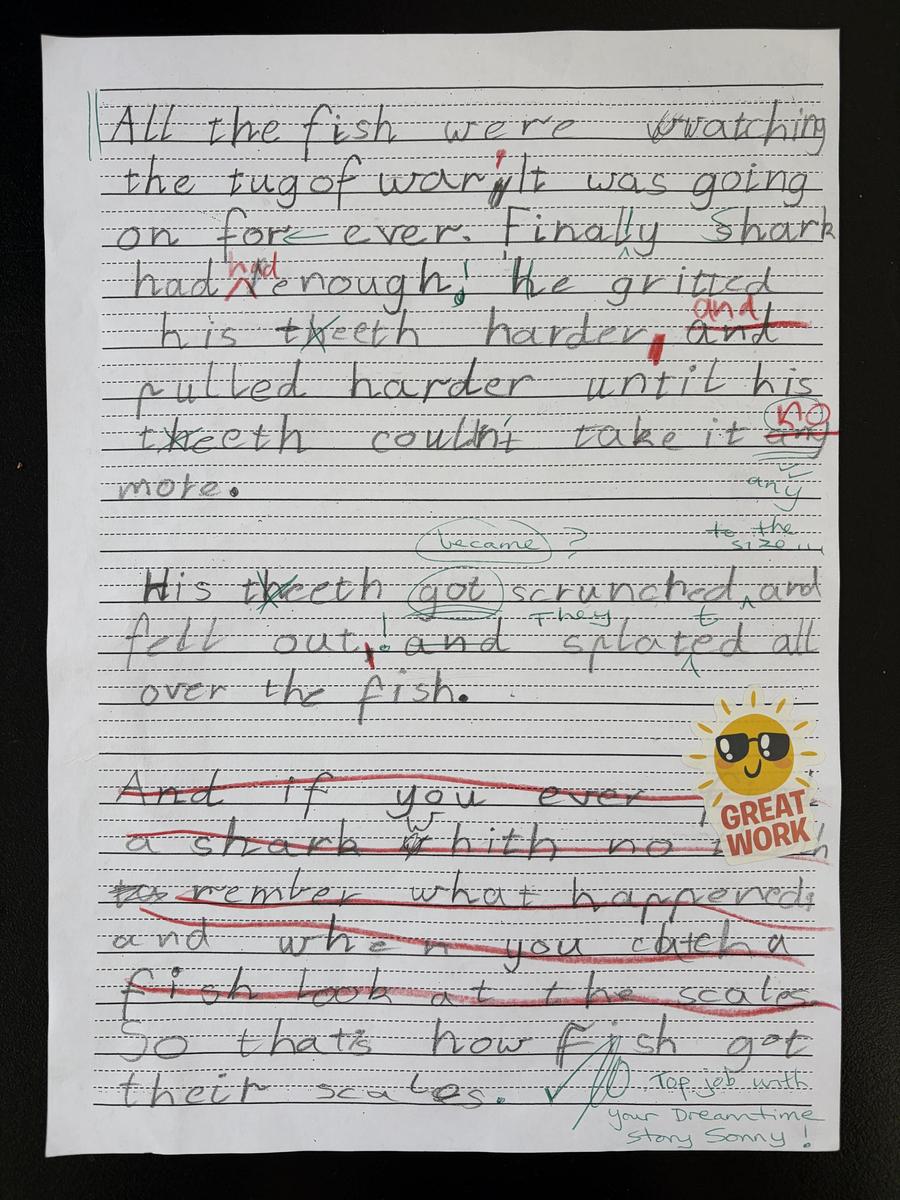 All the fish were watching
the tug of war, It was going
on for ever. Finally Shark
had had enough! He gritted
and
his theeth harder, and
pulled harder until his
no
theeth couldn't take it any
more.
any
became ? to the
size...
His theeth got scrunched, and
They t
fell out,! and splated all
over the fish.
And if you ever
a shark whith no
rember what happened;
and when you catch a
fish look at the scales
So that's how Fish got
their scales.
Top job with
your Dreamtime
story Sonny!
GREAT
WORK